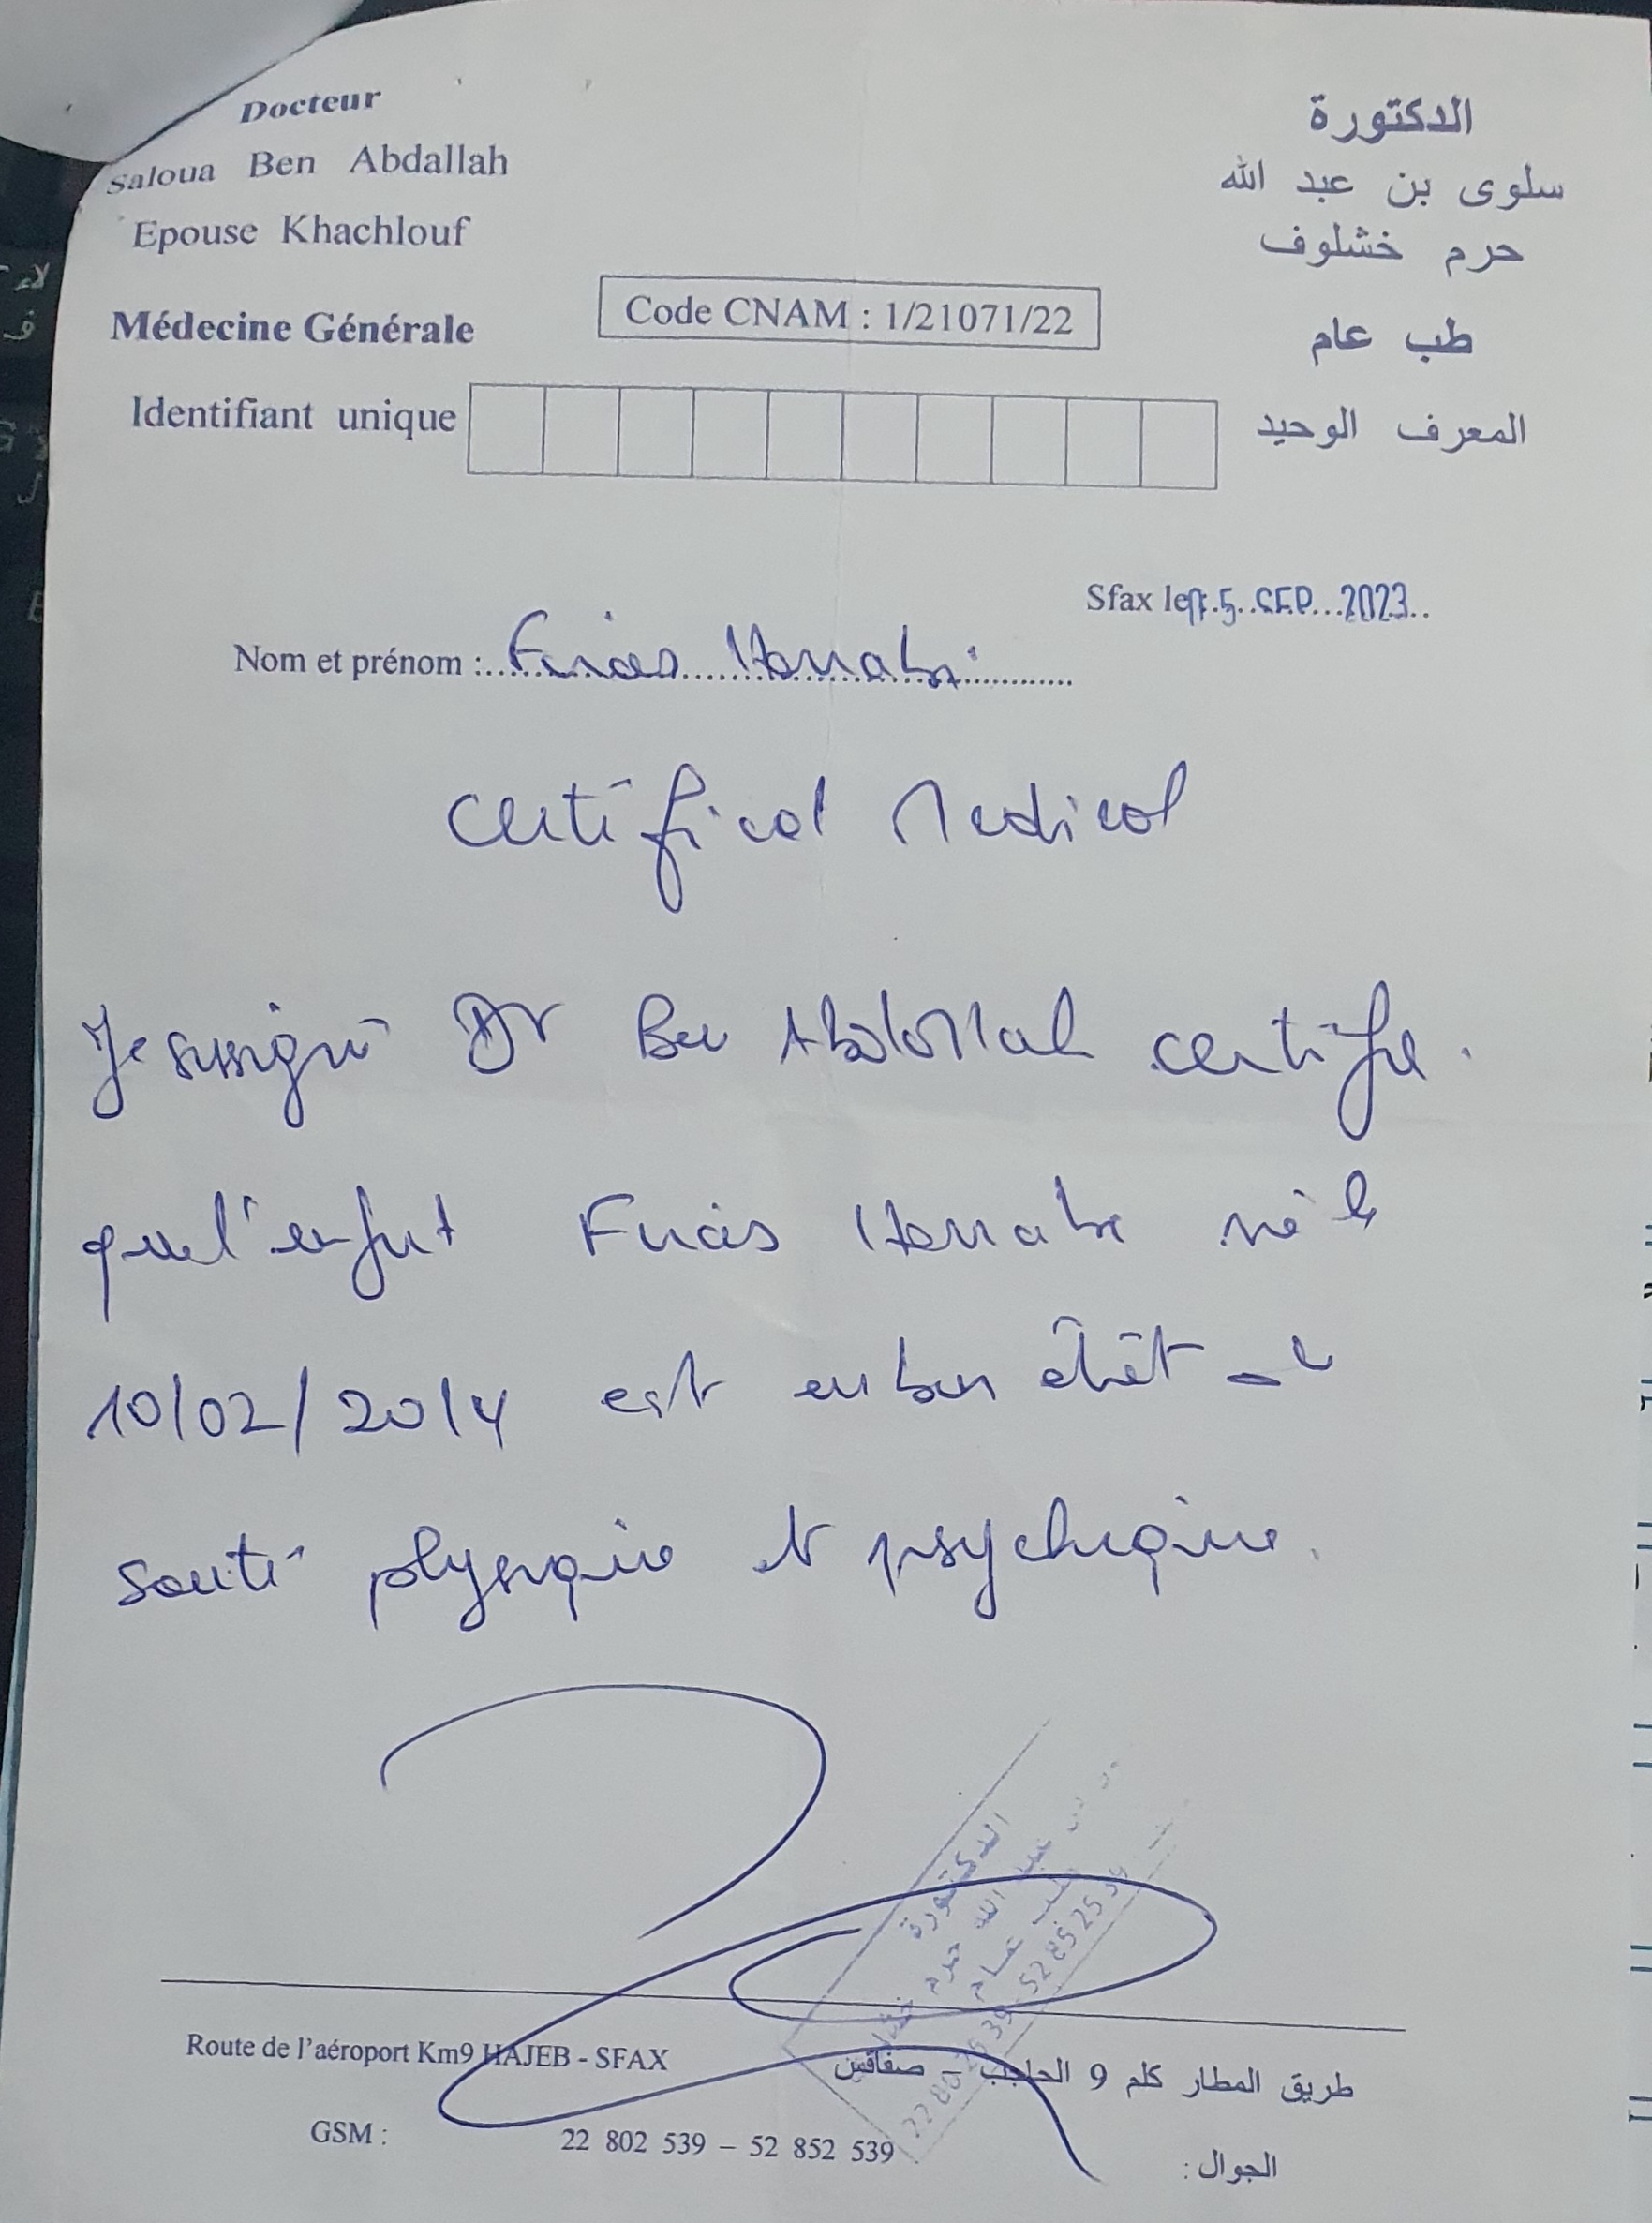 Docteur
Saloua Ben Abdallah
Epouse Khachlouf
Médecine Générale
الدكتورة
سلوى بن عبد الله
حرم خشلوف
طب عام
Code CNAM : 1/21071/22
Identifiant unique المعرف الوحيد
Sfax le 5 SEP 2023
Nom et prénom :
Certificat Medical
Je sousigné Dr Ben Abdallah certifie
que l'enfant né le
10/02/2014 est en bon étât de
santé physique et psychique.
الدكتورة
عبد الله حرم
طب عام
22 802 539 - 52 852 539
Route de l'aéroport Km9 HAJEB - SFAX طريق المطار كلم 9 الحاجب – صفاقس
GSM : 22 802 539 – 52 852 539 الجوال :